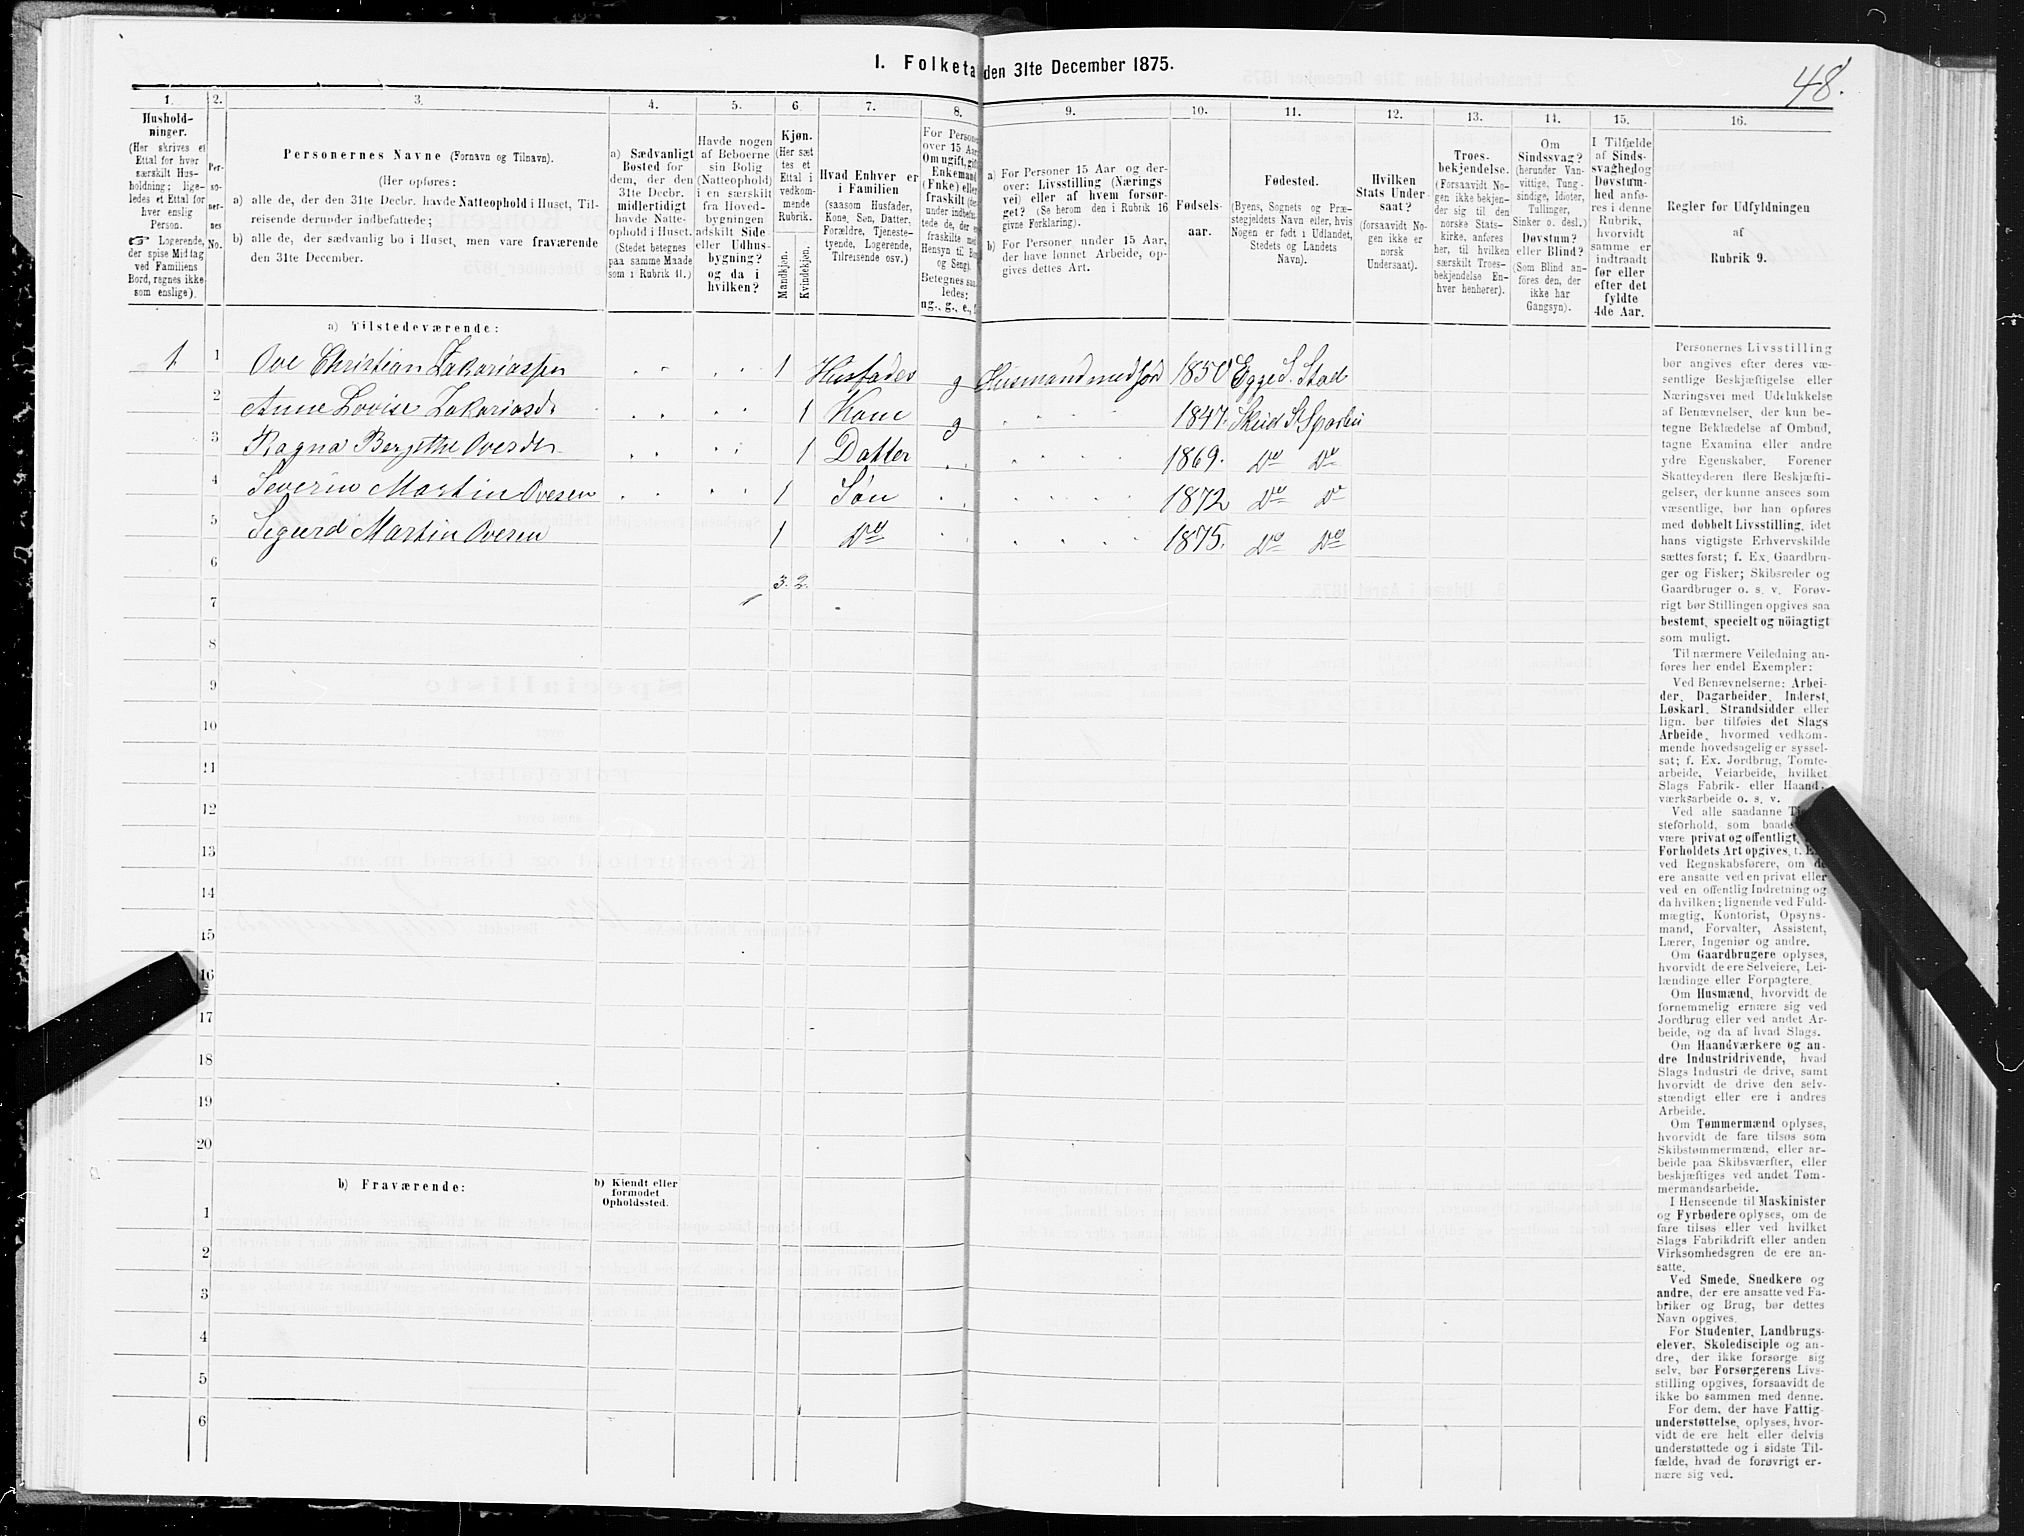 1. Folketa den 31te December 1875.
48.
1. 2. 3. 4. 5. 6. 7. 8. 9. 10. 11. 12. 13. 14. 15. 16.
Hushold-
ninger.
(Her skrives et
Ettal for hver
særskilt Hus-
holdning; lige-
ledes et Ettal for
hver enslig
Person.
☞ Logerende,
der spise Middag
ved Familiens
Bord, regnes ikke
som enslige).
Per-
so-
ner-
nes
No.
Personernes Navne (Fornavn og Tilnavn).
(Her opføres:
a) alle de, der den 31te Decbr. havde Natteophold i Huset, Til-
reisende derunder indbefattede;
b) alle de, der sædvanlig bo i Huset, men vare fraværende
den 31te December.
a) Sædvanligt
Bosted for
dem, der den
31te Decbr.
midlertidigt
havde Natte-
ophold i Huset.
(Stedet betegnes
paa samme Maade
som i Rubrik 11.)
Havde nogen
af Beboerne
sin Bolig
(Natteophold)
i en særskilt
fra Hoved-
bygningen
adskilt Side-
eller Udhus-
bygning?
og da i
hvilken?
Kjøn.
(Her sæt-
tes et
Ettal i
vedkom-
mende
Rubrik.
Mandkjøn.
Kvindekjøn.
Hvad Enhver er
i Familien
(saasom Husfader,
Kone, Søn, Datter,
Forældre, Tjeneste-
tyende, Logerende,
Tilreisende osv.)
For Persone
over 15 Aar
Om ugift, gift
Enkemand
(Enke) eller
fraskilt (der
under indbefat-
tede de, der er
fraskilte med
Hensyn til Bord
og Seng).
Betegnes saa
ledes:
ug., g., e., f.
a) For Personer 15 Aar og der-
over: Livsstilling (Nærings-
vei) eller af hvem forsør-
get? (Se herom den i Rubrik 16
givne Forklaring).
b) For Personer under 15 Aar,
der have lønnet Arbeide, op-
gives dettes Art.
Fødsels-
aar.
Fødested.
(Byens, Sognets og Præ-
stegjeldets Navn eller, hvis
Nogen er født i Udlandet,
Stedets og Landets
Navn).
Hvilken
Stats Under-
saat?
(forsaavidt No-
gen ikke er
norsk
Undersaat).
Troes-
bekjendelse.
(Forsaavidt No-
gen ikke bekjen-
der sig til den
norske Stats-
kirke, anføres
her, til hvilken
særskilt Troes-
bekjendelse En-
hver henhører).
Om
Sindssvag?
(herunder Van-
vittige, Tung-
sindige, Idioter,
Tullinger,
Sinker o. desl.)
Døvstum?
eller Blind?
(Som Blind an-
føres den, der
ikke har
Gangsyn).
I Tilfælde
af Sinds-
svaghed og
Døvstum-
hed anfø-
res i denne
Rubrik,
hvorvidt
samme er
indtraadt
før eller
efter det
fyldte
4de Aar.
Regler for Udfyldningen
af
Rubrik 9.
a) Tilstedeværende:
1 1 Ove Christian Zakariassen 1 Husfader g Husmand med jord 1850 Egge S. Stod
2 Anne Lovise Zakariasdr 1 Kone g 1847. Skeid S. Sparbu
3 Ragna Bergithe Ovesdr 1 Datter 1869. Do Do
4 Severin Martin Ovesen 1 Søn 1872 Do Do
5 Sigurd Martin Ovesen 1 Do 1875. Do Do
6 3. 2.
7
8
9
10
11
12
13
14
15
16
17
18
19
20
b) Fraværende:
b) Kjendt eller
formodet
Opholdssted.
1
2
3
4
5
6
Personernes Livsstilling
bør angives efter deres væ-
sentlige Beskjæftigelse eller
Næringsvei med Udelukkelse
af Benævnelser, der kun be-
tegne Beklædelse af Ombud,
tagne Examina eller andre
ydre Egenskaber. Forener
Skatteyderen flere Beskjæfti-
gelser, der kunne ansees som
væsentlige, bør han opføres
med dobbelt Livsstilling, idet
hans vigtigste Erhvervskilde
sættes først; f. Ex. Gaardbru-
ger og Fisker; Skibsreder og
Gaardbruger o. s. v. Forøv-
rigt bør Stillingen opgives saa
bestemt, specielt og nöiagtigt
som muligt.
Til nærmere Veiledning an-
føres her endel Exempler:
Ved Benævnelserne: Arbei-
der, Dagarbeider, Inderst,
Løskarl, Strandsidder eller
lign. bør tilføies det Slags
Arbeide, hvormed vedkom-
mende hovedsagelig er syssel-
sat; f. Ex. Jordbrug, Tomte-
arbeide, Veiarbeide, hvilket
Slags Fabrik- eller Haand-
værksarbeide o. s. v.
Ved alle saadanne
steforhold, som baade
være privat og offentligt,
Forholdets Art opgives, f. Ex.
ved Regnskabsførere, om de
ere ansatte ved en privat eller
ved en offentlig Indretning og
da hvilken; lignende ved Fuld-
mægtig, Kontorist, Opsyns-
mand, Forvalter, Assistent,
Lærer, Ingeniør og andre.
Om Gaardbrugere oplyses,
hvorvidt de ere Selveiere, Lei-
lændinge eller Forpagtere.
Om Husmænd, hvorvidt de
fornemmelig ernære sig ved
Jordbrug eller ved andet Ar-
beide, og da af hvad Slags.
Om Haandværkere og an-
dre Industridrivende, hvad
Slags Industri de drive, samt
hvorvidt de drive den selv-
stændigt eller ere i andres
Arbeide.
Om Tømmermænd oplyses,
hvorvidt de fare tilsøs som
Skibstømmermænd, eller ar-
beide paa Skibsværfter, eller
beskjæftiges ved andet Tøm-
mermandsarbeide.
I Henseende til Maskinister
og Fyrbødere oplyses, om de
fare tilsøs eller ved hvilket
Slags Fabrikdrift eller anden
Virksomhedsgren de ere an-
satte.
Ved Smede, Snedkere og
andre, der ere ansatte ved Fa-
briker og Brug, bør dettes
Navn opgives.
For Studenter, Landbrugs-
elever, Skoledisciple og an-
dre, der ikke forsørge sig
selv, bør Forsørgerens Livs-
stilling opgives, forsaavidt de
ikke bo sammen med denne.
For dem, der have Fattig-
understøttelse, oplyses, hvor-
vidt de ere helt eller delvis
understøttede og i sidste Til-
fælde, hvad de forøvrigt er-
nære sig ved.